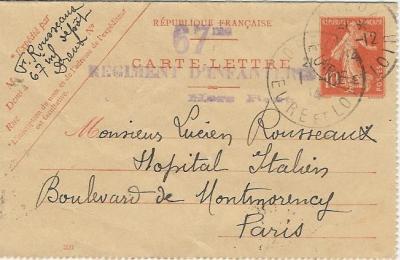 RÉPUBLIQUE FRANÇAISE
67me
CARTE-LETTRE
REGIMENT D'INFANTERIE
Expédié par
Fr Rousseaux
67 inf depôt
Dreux
Rue
L'indication du nom et de l'adresse de l'expéditeur
est facultative.
EURE ET LOIR
10
POSTES
Monsieur Lucien Rousseaux
Hopital Italien
Boulevard de Montmorency
Paris